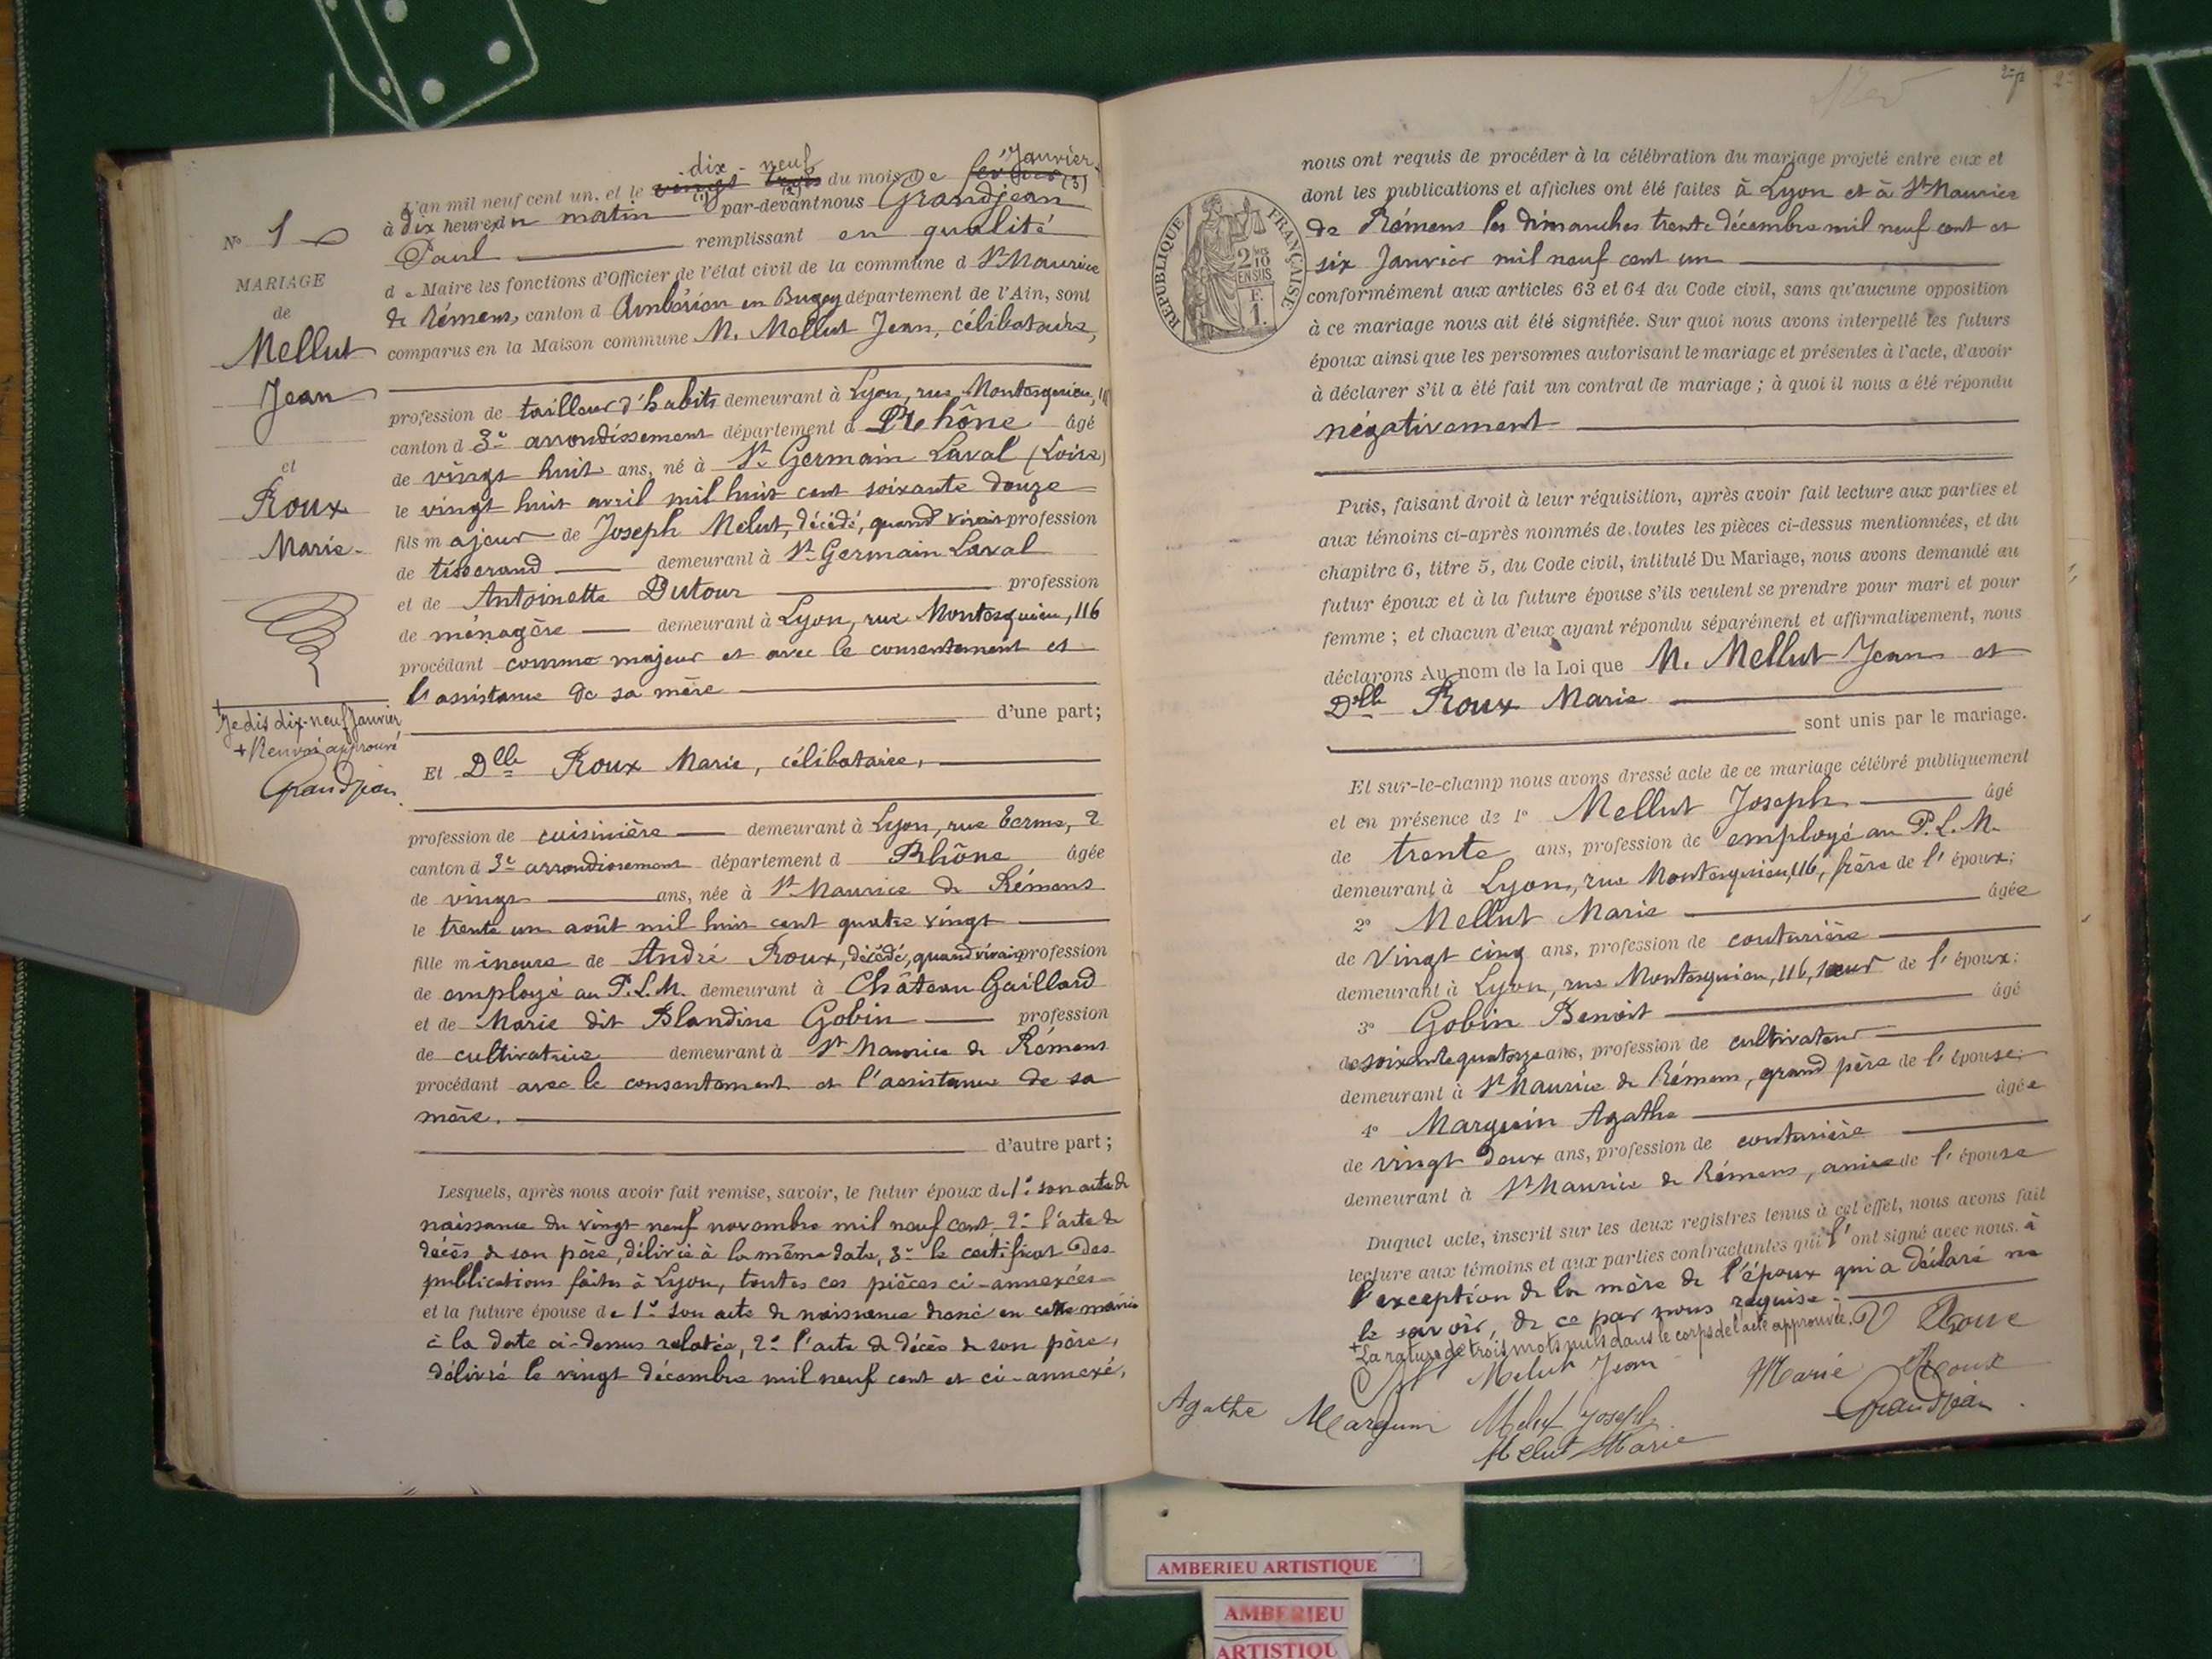 N° 1
MARIAGE
de
Mellut
Jean
et
Roux
Marie.
Je dis dix-neuf Janvier
+ Renvoi approuvé
Grandjean
dix-neuf Janvier
L'an mil neuf cent un, et le vingt trois du mois de février (3)
à dix heures du matin par-devant nous Grandjean
Paul remplissant en qualité
de Maire les fonctions d'Officier de l'état civil de la commune d St Maurice
de Rémens, canton d Ambérieu en Bugey département de l'Ain, sont
comparus en la Maison commune M. Mellut Jean, célibataire,
profession de tailleur d'habits demeurant à Lyon, rue Montesquieu,
canton d 3e arrondissement département d Rhône âgé
de vingt huit ans, né à St Germain Laval (Loire)
le vingt huit avril mil huit cent soixante douze
fils majeur de Joseph Melut, décédé, quand vivait profession
de tisserand demeurant à St Germain Laval
et de Antoinette Dutour profession
de ménagère demeurant à Lyon, rue Montesquieu, 116
procédant comme majeur et avec le consentement et
l'assistance de sa mère
d'une part;
Et Dlle Roux Marie, célibataire,
profession de cuisinière demeurant à Lyon, rue
canton d 3e arrondissement département d Rhône âgée
de vingt ans, née à St Maurice de Rémens
le trente un août mil huit cent quatre vingt
fille mineure de André Roux, décédé, quand vivait profession
de employé au P.L.M. demeurant à Château Gaillard
et de Marie dit Blandine Gobin profession
de cultivatrice demeurant à St Maurice de Rémens
procédant avec le consentement et l'assistance de sa
mère.
d'autre part;
Lesquels, après nous avoir fait remise, savoir, le futur époux de 1° son acte de
naissance du vingt neuf novembre mil neuf cent, 2° l'acte de
décès de son père, délivré à la même date, 3° le certificat des
publications faites à Lyon, toutes ces pièces ci-annexées
et la future épouse de 1° son acte de naissance dressé en cette mairie
à la date ci-dessus relatée, 2° l'acte de décès de son père,
délivré le vingt décembre mil neuf cent et ci-annexé,
RÉPUBLIQUE FRANÇAISE
2 10es
EN SUS
F.
1.
nous ont requis de procéder à la célébration du mariage projeté entre eux et
dont les publications et affiches ont été faites à Lyon et à St Maurice
de Rémens les dimanches trente décembre mil neuf cent et
six Janvier mil neuf cent un
conformément aux articles 63 et 64 du Code civil, sans qu'aucune opposition
à ce mariage nous ait été signifiée. Sur quoi nous avons interpellé les futurs
époux ainsi que les personnes autorisant le mariage et présentes à l'acte, d'avoir
à déclarer s'il a été fait un contrat de mariage; à quoi il nous a été répondu
négativement
Puis, faisant droit à leur réquisition, après avoir fait lecture aux parties et
aux témoins ci-après nommés de toutes les pièces ci-dessus mentionnées, et du
chapitre 6, titre 5, du Code civil, intitulé Du Mariage, nous avons demandé au
futur époux et à la future épouse s'ils veulent se prendre pour mari et pour
femme; et chacun d'eux ayant répondu séparément et affirmativement, nous
déclarons Au nom de la Loi que M. Mellut Jean et
Dlle Roux Marie
sont unis par le mariage.
Et sur-le-champ nous avons dressé acte de ce mariage célébré publiquement
et en présence de 1° Mellut Joseph âgé
de trente ans, profession de employé au P.L.M.
demeurant à Lyon, rue Montesquieu, 116, frère de l'époux;
2° Mellut Marie âgée
de Vingt cinq ans, profession de couturière
demeurant à Lyon, rue Montesquieu, 116, sœur de l'époux;
3° Gobin Benoit âgé
de soixante quatorze ans, profession de cultivateur
demeurant à St Maurice de Rémens, grand père de l'épouse;
4° Marguin Agathe âgée
de vingt deux ans, profession de couturière
demeurant à St Maurice de Rémens, amie de l'épouse
Duquel acte, inscrit sur les deux registres tenus à cet effet, nous avons fait
lecture aux témoins et aux parties contractantes qui l'ont signé avec nous, à
l'exception de la mère de l'époux qui a déclaré ne
le savoir, de ce par nous requise.
+ La rature de trois mots nuls dans le corps de l'acte approuvée. V Roux
Melut Jean Marie Roux
Agathe Marguin Melut Joseph Grandjean
Melut Marie
AMBERIEU ARTISTIQUE
AMBERIEU
ARTISTIQU